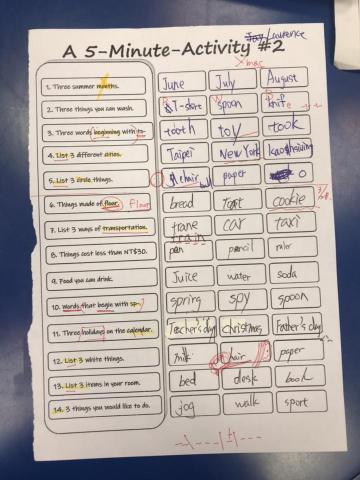 Laurence
A 5-Minute-Activity #2
1. Three summer months. June July August
2. Three things you can wash. T-shirt spoon knif e
3. Three words beginning with to. tooth toy took
4. List 3 different cities. Taipei New York kaohsiung
5. List 3 circle things. chair ball paper O
6. Things made of flour. Flour bread Toast cookie
7. List 3 ways of transportation. trane train car taxi
8. Things cost less than NT$30. pen pencil ruler
9. Food you can drink. Juice water soda
10. Words that begin with sp. spring spy spoon
11. Three holidays on the calendar. Teacher's day christmas Father's day
12. List 3 white things. milk chair paper
13. List 3 items in your room. bed desk book
14. 3 things you would like to do. jog walk sport